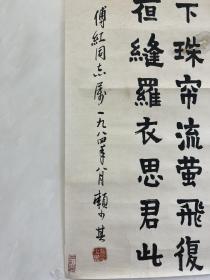 下珠帘流萤飛復
袒縫羅衣思君此
傅紅同志属 一九八四年八月 賴少其